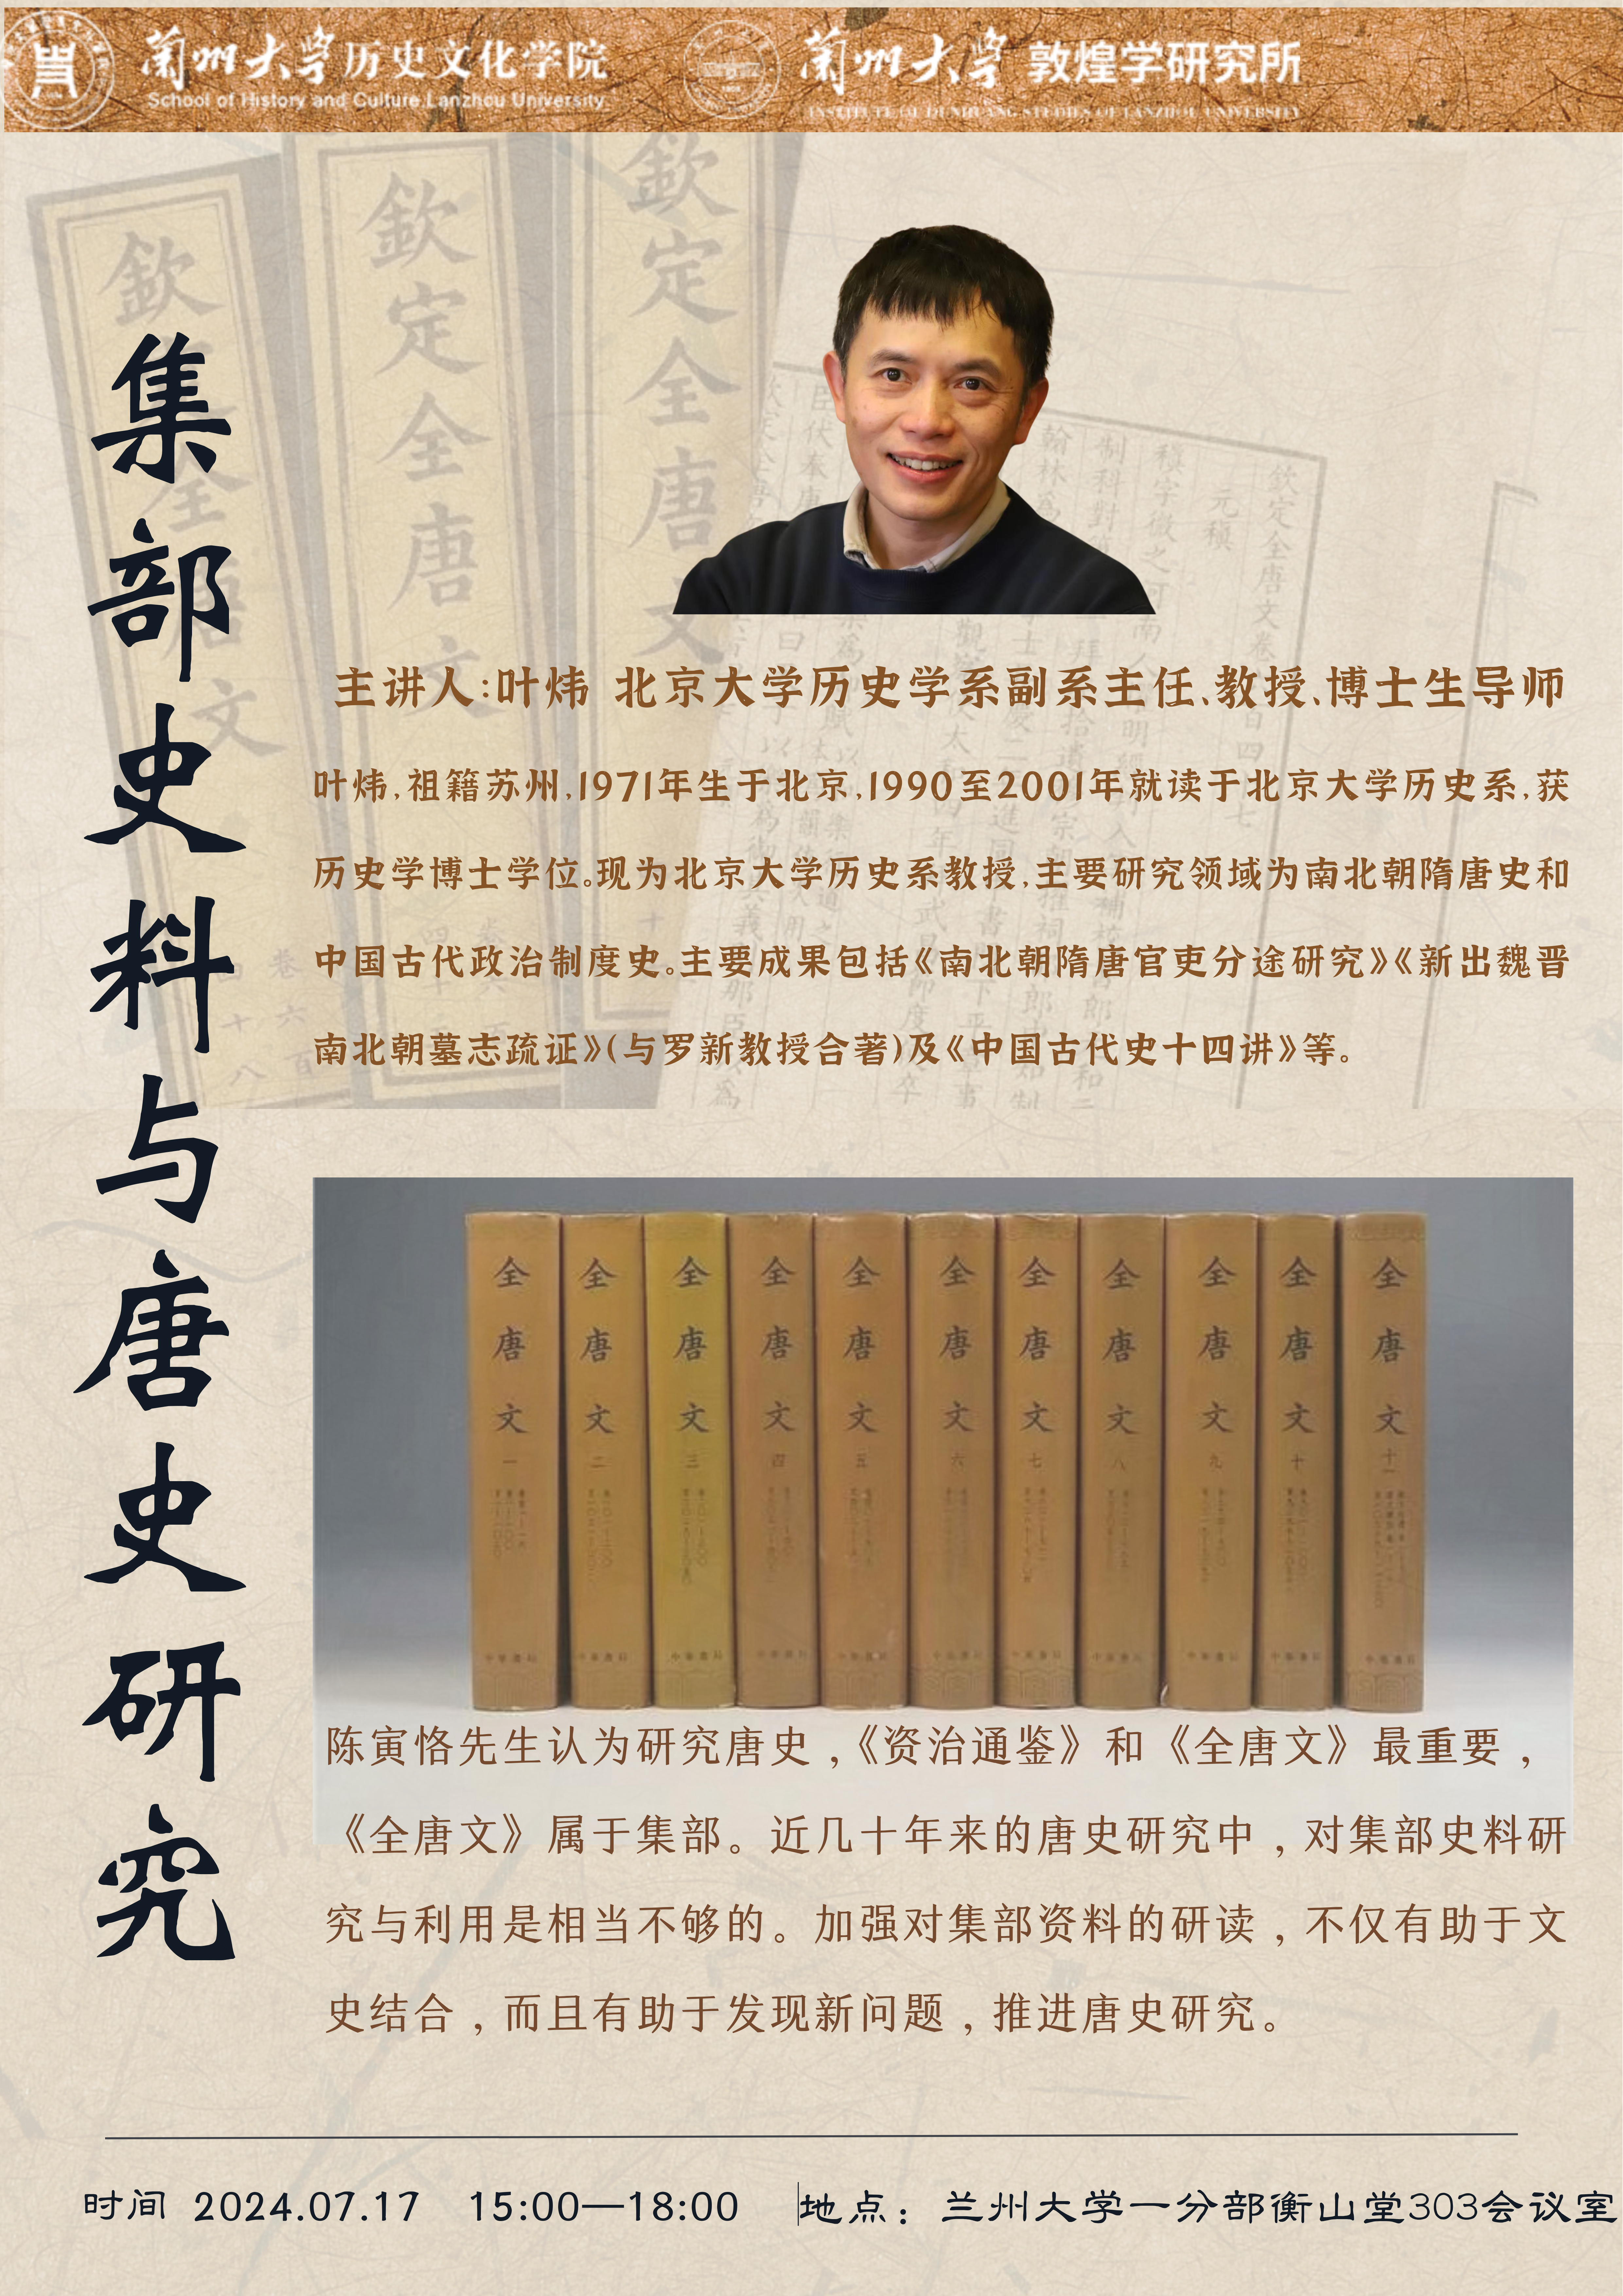 兰州大学 历史文化学院
School of History and Culture.Lanzhou University
兰州大学 敦煌学研究所
INSTITUTE OF DUNHUANG STUDIES OF LANZHOU UNIVERSITY
欽定全唐文
欽定全唐文
欽定全唐文
集部史料与唐史研究
主讲人:叶炜 北京大学历史学系副系主任、教授、博士生导师
叶炜,祖籍苏州,1971年生于北京,1990至2001年就读于北京大学历史系,获
历史学博士学位。现为北京大学历史系教授,主要研究领域为南北朝隋唐史和
中国古代政治制度史。主要成果包括《南北朝隋唐官吏分途研究》《新出魏晋
南北朝墓志疏证》(与罗新教授合著)及《中国古代史十四讲》等。
全唐文 一
全唐文 二
全唐文 三
全唐文 四
全唐文 五
全唐文 六
全唐文 七
全唐文 八
全唐文 九
全唐文 十
全唐文 十一
陈寅恪先生认为研究唐史,《资治通鉴》和《全唐文》最重要,
《全唐文》属于集部。近几十年来的唐史研究中,对集部史料研
究与利用是相当不够的。加强对集部资料的研读,不仅有助于文
史结合,而且有助于发现新问题,推进唐史研究。
时间 2024.07.17 15:00—18:00 地点:兰州大学一分部衡山堂303会议室